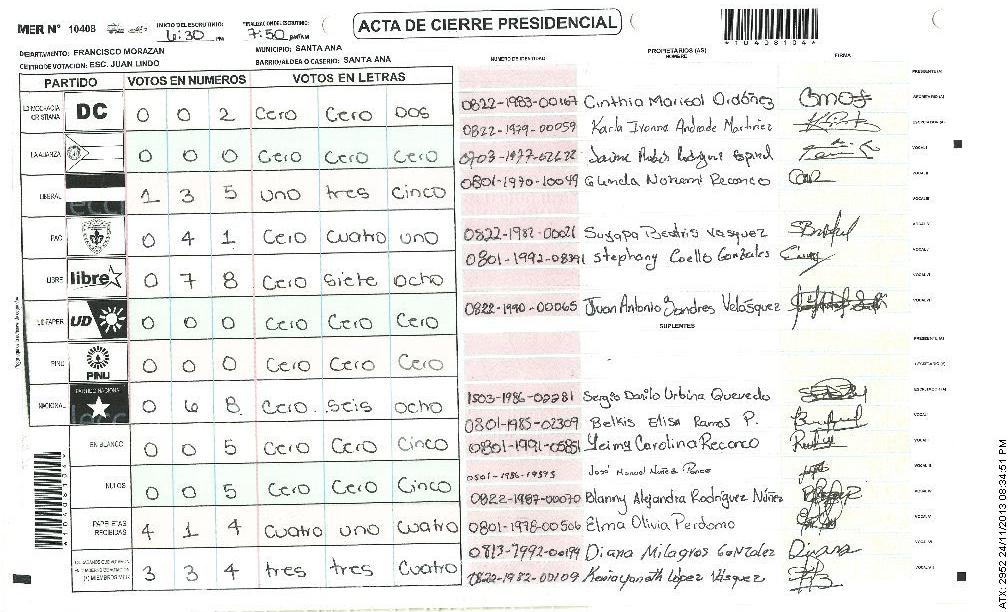 MER Nº 10408
INICIO DEL ESCRUTINIO: 6:30 PM
FINALIZACION DEL ESCRUTINIO: 7:50 PM/AM
ACTA DE CIERRE PRESIDENCIAL
*10408104*
DEPARTAMENTO: FRANCISCO MORAZAN
MUNICIPIO: SANTA ANA
CENTRO DE VOTACION: ESC. JUAN LINDO
BARRIO/ALDEA O CASERIO: SANTA ANA
NUMERO DE IDENTIDAD
PROPIETARIOS (AS)
NOMBRE
FIRMA
PARTIDO VOTOS EN NUMEROS VOTOS EN LETRAS
DEMOCRACIA CRISTIANA DC 0 0 2 Cero Cero Dos
LA ALIANZA 0 0 0 Cero Cero Cero
LIBERAL 1 3 5 uno tres Cinco
PAC 0 4 1 Cero Cuatro uno
LIBRE libre 0 7 8 Cero Siete ocho
UD FAPER UD 0 0 0 Cero Cero Cero
PINU PINU 0 0 0 Cero Cero Cero
NACIONAL PARTIDO NACIONAL 0 6 8 Cero Seis ocho
EN BLANCO 0 0 5 Cero Cero Cinco
NULOS 0 0 5 Cero Cero Cinco
PAPELETAS RECIBIDAS 4 1 4 Cuatro uno Cuatro
3 3 4 tres tres Cuatro
PRESIDENTE (A)
0822-1983-00167 Cinthia Marisol Ordóñez SECRETARIO (A)
0822-1979-00059 Karla Ivonne Andrade Martinez ESCRUTADOR (A)
Jaime Rodriguez VOCAL I
0801-1970-10049 Nohemi Reconco VOCAL II
VOCAL III
0822-1982-00021 Suyapa Beatris Vasquez VOCAL IV
0801-1992-08391 Stephany Coello Gonzales VOCAL V
VOCAL VI
0822-1990-00065 Juan Antonio Sandres Velásquez VOCAL VII
SUPLENTES
PRESIDENTE (A)
SECRETARIO (A)
1503-1986-02281 Sergio Danilo Urbina Quevedo ESCRUTADOR (A)
0801-1985-02309 Belkis Elisa Ramos P. VOCAL I
0801-1991-05851 Yeimy Carolina Reconco VOCAL II
José Manuel Nuñez Ponce VOCAL III
0822-1987-00070 Blanny Alejandra Rodríguez Núñez VOCAL IV
0801-1978-00506 Elma Olivia Perdomo VOCAL V
0813-1992-00199 Diana Milagros Gonzalez VOCAL VI
0822-1982-00109 López Vásquez VOCAL VII
*10408104*
24/11/2013 08:34:51 PM